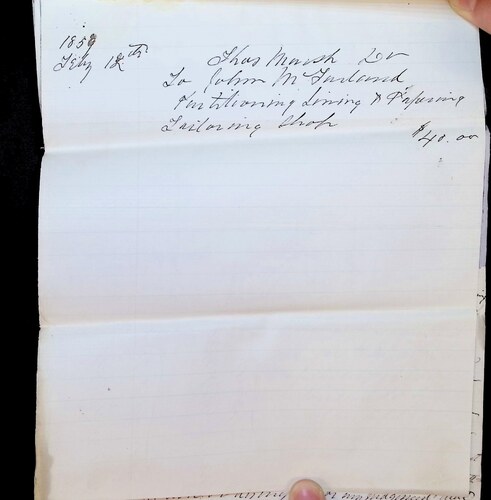 1859
Feby 12th
Thos Marsh Dr
To John McFarland
Partitioning Lining & Papering
Tailoring Shop
$40.00